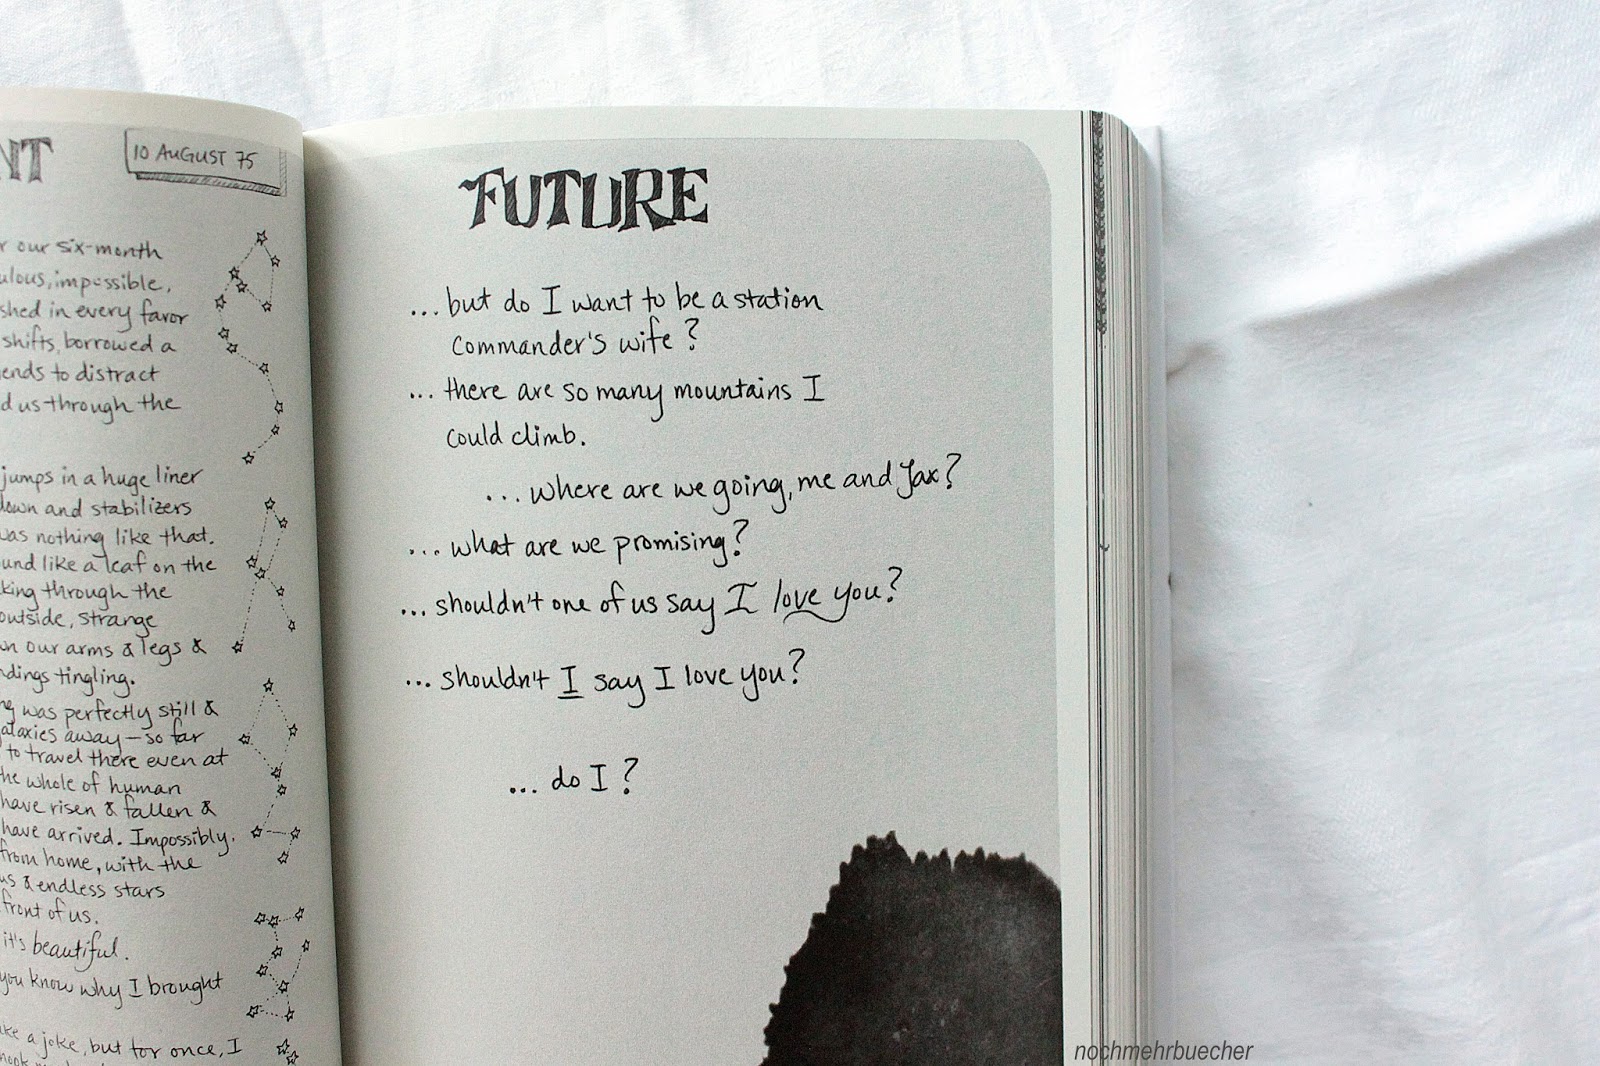 NT
10 AUGUST 75
our six-month
impossible,
in every favor
shifts, borrowed a
to distract
us through the
jumps in a huge liner
down and stabilizers
was nothing like that.
like a leaf on the
through the
outside, strange
our arms & legs &
tingling.
was perfectly still &
galaxies away—so far
to travel there even at
the whole of human
have risen & fallen &
have arrived. Impossibly.
from home, with the
us & endless stars
front of us.
it's beautiful.
you know why I brought
a joke, but for once, I
FUTURE
...but do I want to be a station
commander's wife?
...there are so many mountains I
could climb.
...where are we going, me and Jax?
...what are we promising?
...shouldn't one of us say I love you?
...shouldn't I say I love you?
...do I?
nochmehrbuecher